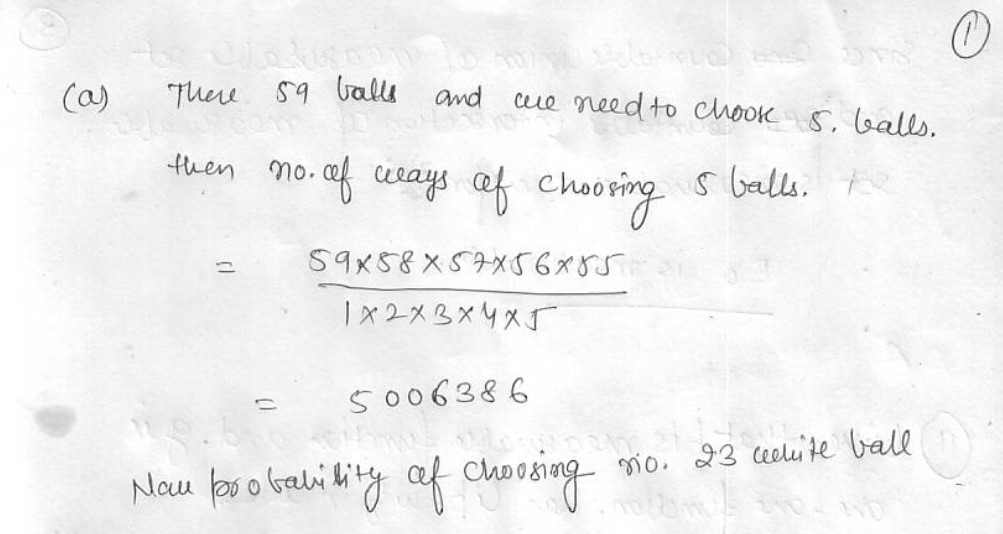 1
(a) There 59 balls and we need to choose 5. balls.
then no. of ways of choosing 5 balls.
= 59×58×57×56×55
1×2×3×4×5
= 5006386
Now probability of choosing no. 23 white ball